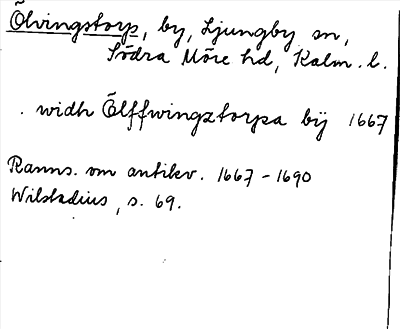 Ölvingstorp, by, Ljungby sn,
Södra Möre hd, Kalm. l.
. widh Ölffwingztorpa bÿ 1667
Ranns. om antikv. 1667-1690
Wilstadius, s. 69.